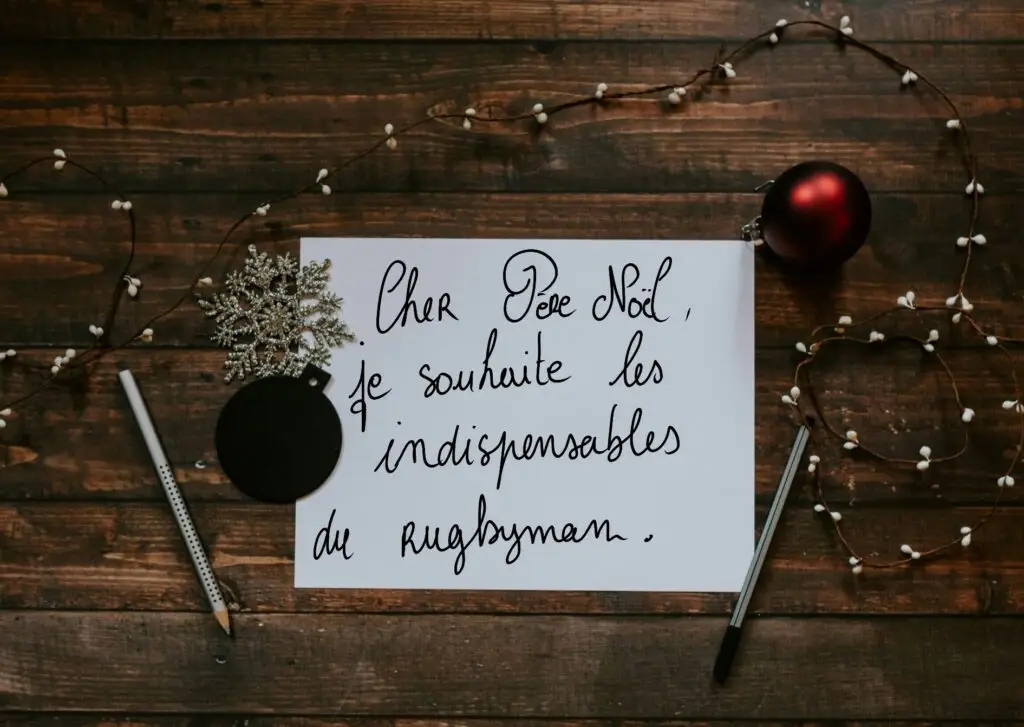 Cher Père Noël,
je souhaite les
indispensables
du rugbyman.